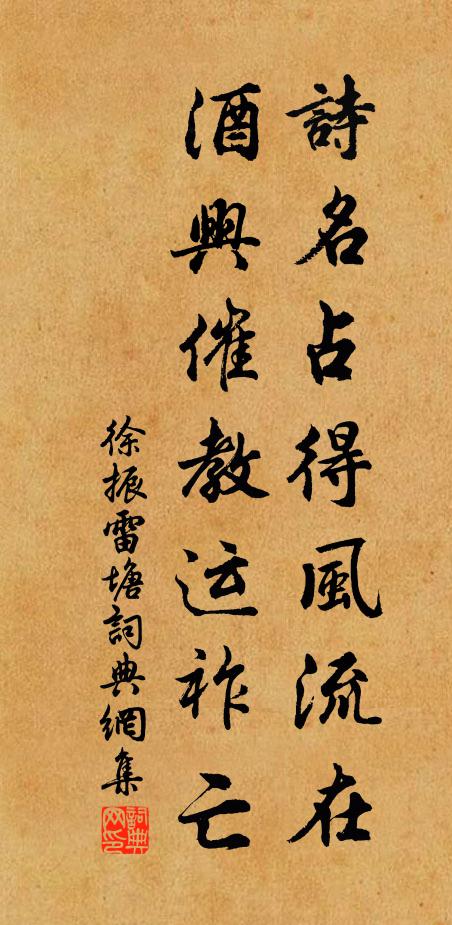 詩名占得風流在
酒興催教运祚亡
徐振雷塘詞典網集
詞典网印